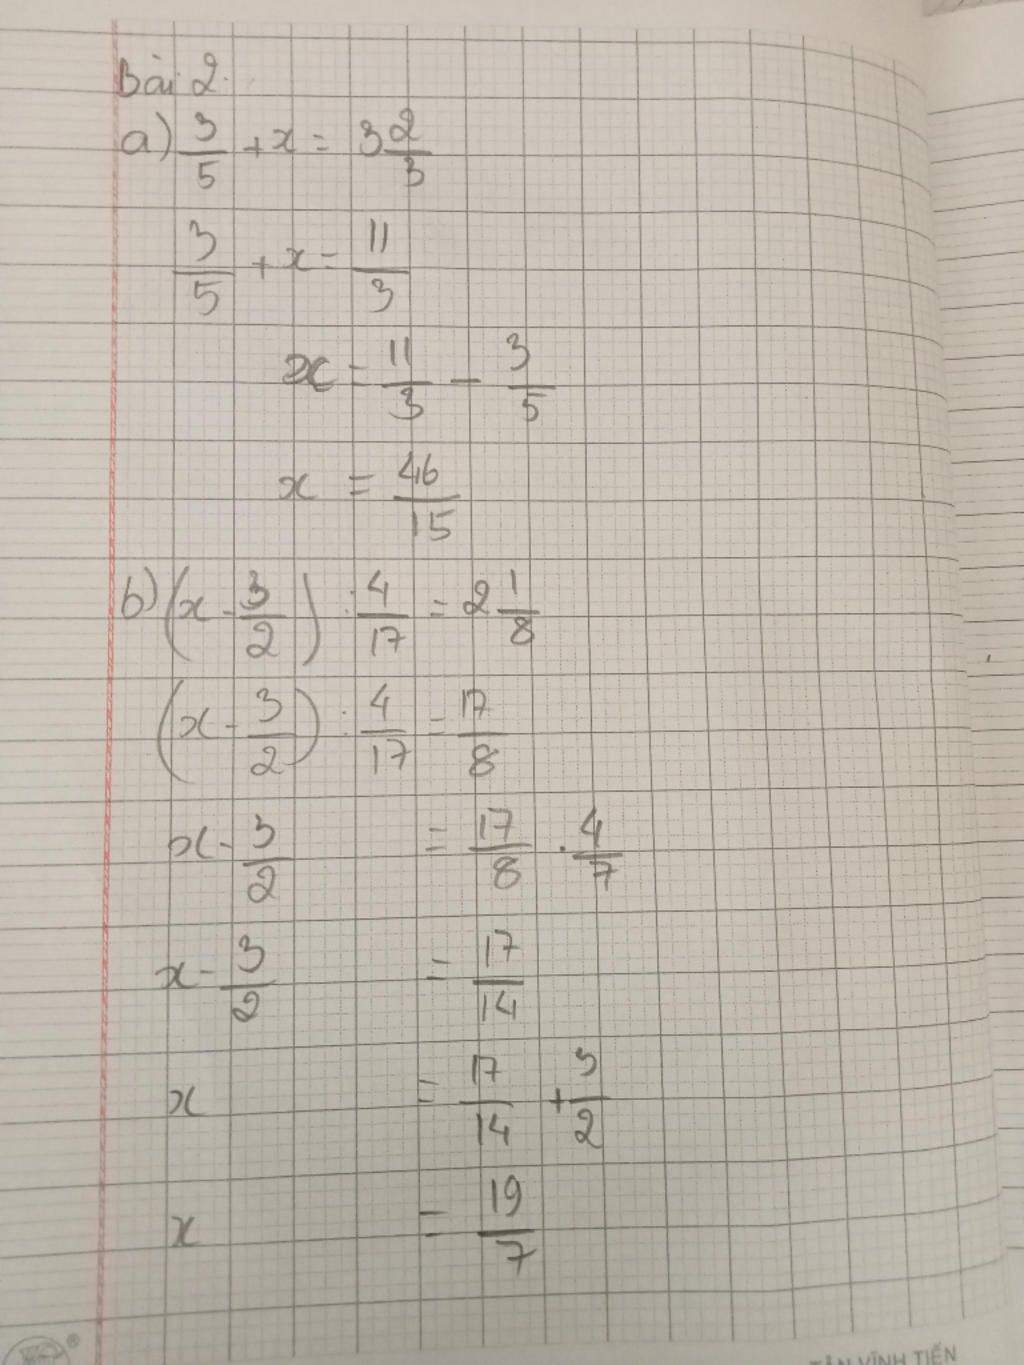 Bài 2.
a) 3/5 + x = 3 2/3
3/5 + x = 11/3
x = 11/3 - 3/5
x = 46/15
b) (x - 3/2) : 4/17 = 2 1/8
(x - 3/2) : 4/17 = 17/8
x - 3/2 = 17/8 . 4/7
x - 3/2 = 17/14
x = 17/14 + 3/2
x = 19/7
TÂN VĨNH TIẾN